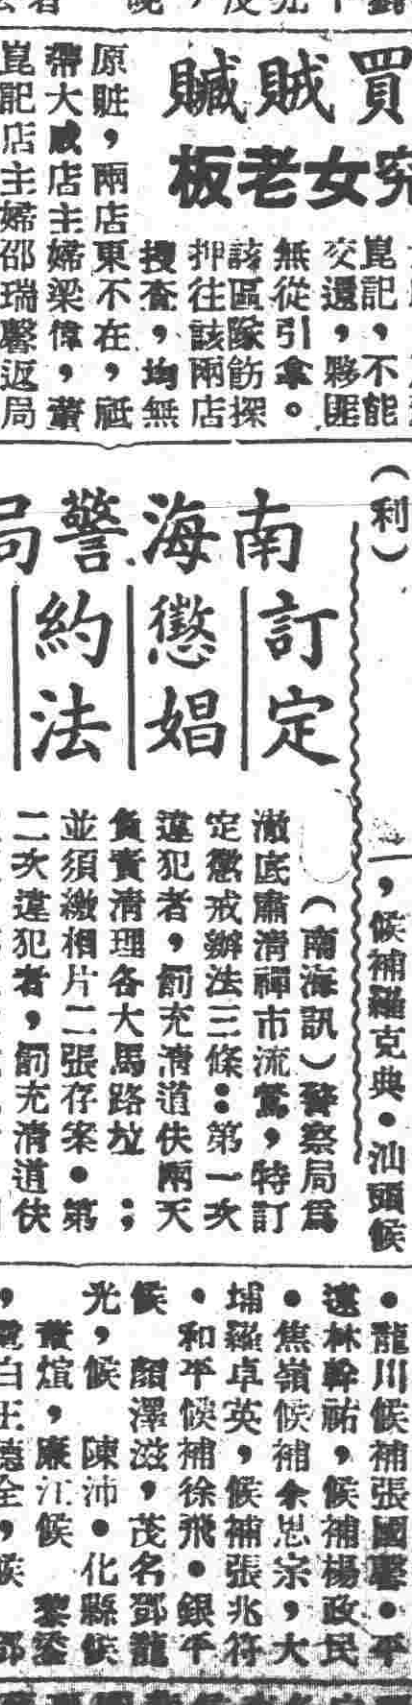 買賊贓
究女老板
崑記，不能
交還，夥匪
無從引拿。
該區隊飭探
押往該兩店
搜查，均無
原賍，兩店東不在，祗
帶大威店主婦梁偉，葉
崑記店主婦邵瑞馨返局
（利）
南海警局
訂定
懲娼
約法
（南海訊）警察局爲
澈底肅清禪市流鶯，特訂
定懲戒辦法三條：第一次
違犯者，罰充清道伕兩天
負責清理各大馬路垃；
並須繳相片二張存案●第
二次違犯者，罰充清道伕
一，候補羅克典●汕頭候
●龍川候補張國馨●平
遠林幹祐，候補楊政民
●焦嶺候補余思宗，大
埔羅卓英，候補張兆符
●和平候補徐飛●銀平
候 顏澤滋，茂名鄧龍
光，候 陳沛●化縣候
葉煊，廉江候 黎
白王德全，候 鄧